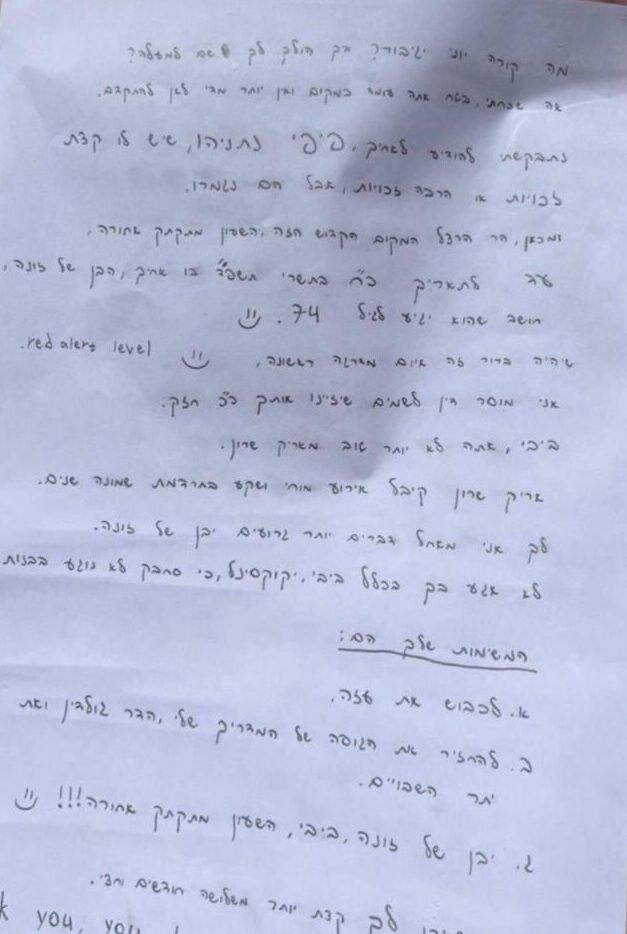 מה קורה יוני יגיבור? הך הולך לך שם למעלה?
אה שכחתי, בטח אתה עומד במקום ואין יותר מדי לאן להתקדם.
נתבקשתי להודיע לאחיך, פיפי נתניהו, שיש לו קצת
זכויות או הרבה זכויות, אבל הם נגמרו.
ומכאן, הר הרצל המקום הקדוש הזה, השעון מתקתק אחורה,
עד לתאריך כ"ח בתשרי תשפ"ד בו אחיך, הבן של זונה,
חושב שהוא יגיע לגיל 74.
שיהיה ברור זה איום מדרגה ראשונה, red alert level.
אני מוסר דין לשמים שיזיינו אותך כ"כ חזק.
ביבי, אתה לא יותר טוב מאריק שרון.
אריק שרון קיבל אירוע מוחי ושקע בתרדמת שמונה שנים.
לך אני מאחל דברים יותר גרועים יבן של זונה.
לא אגע בך בכלל ביבי, יקוקסינל, כי סחבק לא נוגע בבנות
המשימות שלך הם:
א. לכבוש את עזה.
ב. להחזיר את הגופה של המדריך שלי, הדר גולדין ואת
יתר השבויים.
ג. יבן של זונה, ביבי, השעון מתקתק אחורה!!!
לך קצת יותר משלושה חודשים וחצי.
you, you